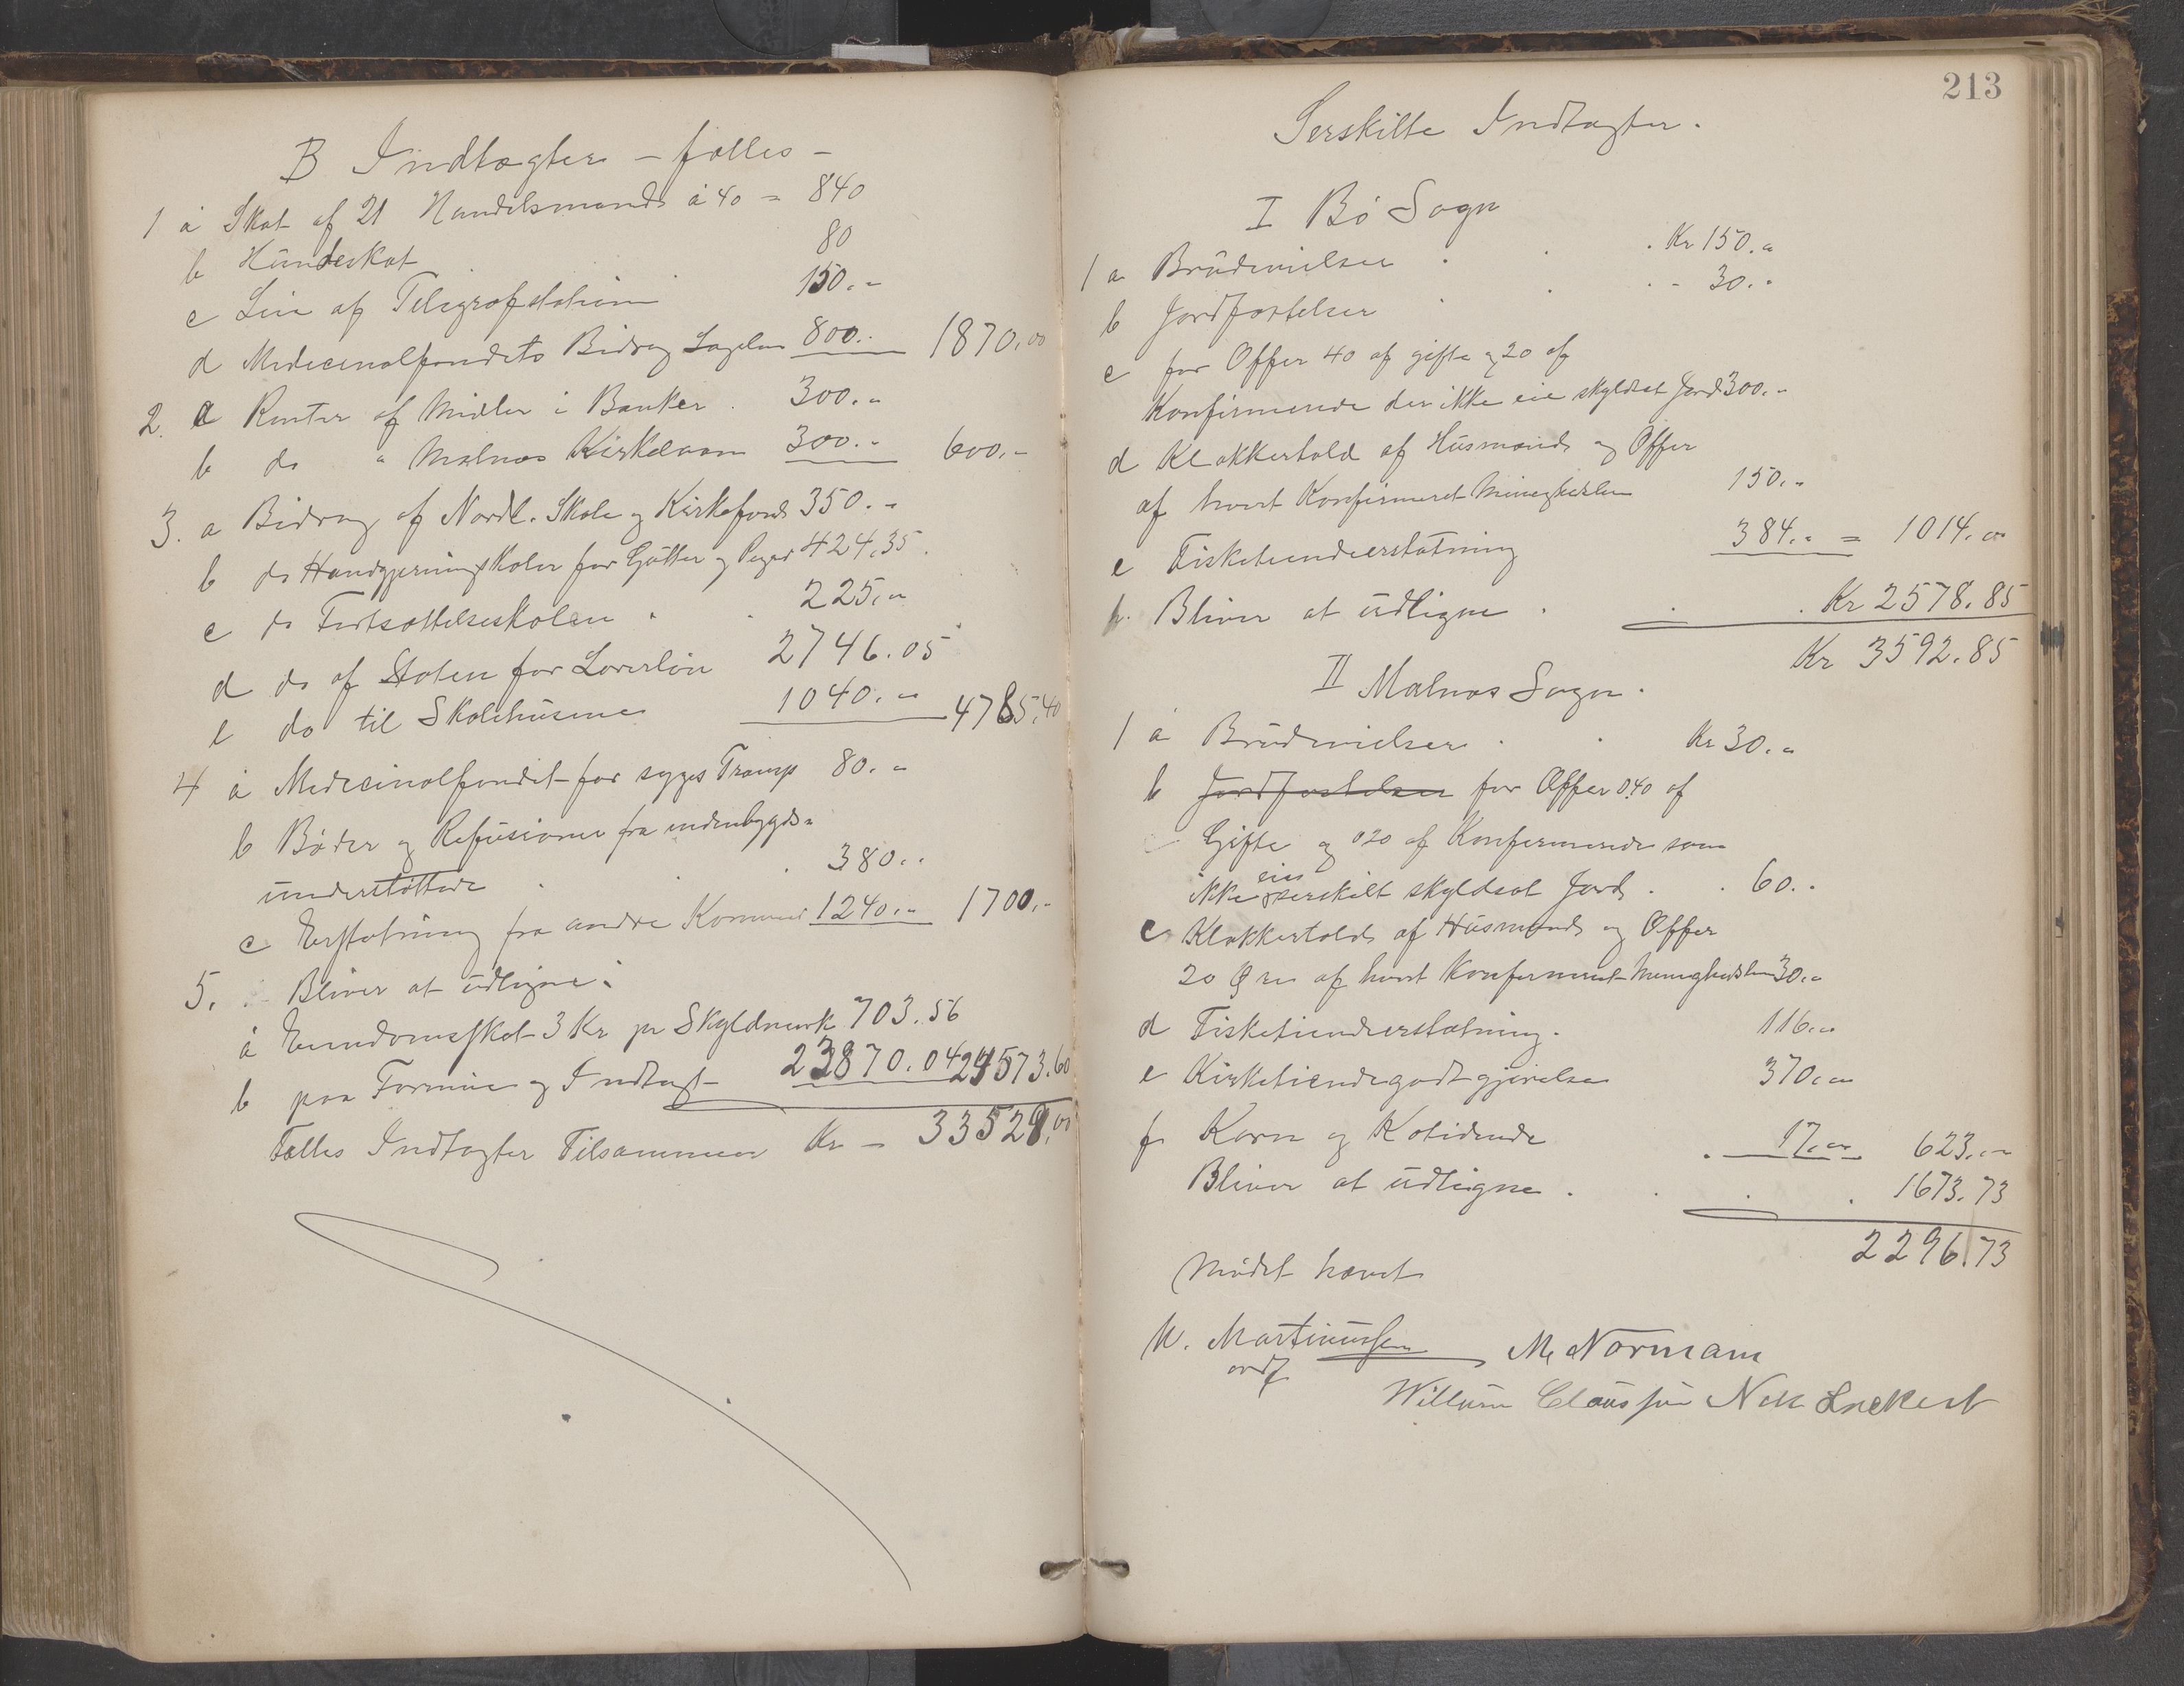 B Indtægter – fælles –
1 a Skat af 21 Handelsmænd á 40 = 840
b Hundeskat 80
c Leie af Telegrafstation 150.-
d Medicinalfondets Bidrag Lægeløn 800.. 1870,00
2. a Renter af Midler i Banker . 300.-
b do " Malnæs Kirkelaan 300.- 600.-
3. a Bidrag af Nordl. Skole og Kirkefond 350.-
b do Haandgjerningskoler for Gutter og Piger 424,35.
c do Fortsættelsesskolen . . 225.-
d do af Staten for Lærerløn 2746.05
e do til Skolehusene 1040.- 4785,40
4 a Medicinalfondet for syges Transp 80.-
b Bøder og Refusioner fra indenbygds-
understøttede . . 380..
c Erstatning fra andre Kommuner 1240.- 1700,-
5. Bliver at udligne:
a Eiendomsskat 3 Kr pr Skyldmark 703.56
b paa Formue og Indtægt 23870.04 24573.60
Fælles Indtægter Tilsammen Kr – 33529,00
213
Særskilte Indtægter.
I Bø Sogn
1 a Brudevielser . . . Kr 150.-
b Jordfæstelser . . . - 30.-
c for Offer 40 af gifte og 20 af
Konfirmerede der ikke eie skyldsat Jord 300.-
d Klokkertold af Husmænd og Offer
af hvert Konfirmeret Menighedslem 150.-
e Fisketiendeerstatning 384.- = 1014.00
Bliver at udligne . . . Kr 2578.85
Kr 3592.85
II Malnæs Sogn.
1 a Brudevielser . . Kr 30.-
b Jordfæstelser for Offer 0.40 af
Gifte og 020 af Konfirmerede som
eie
ikke særskilt skyldsat Jord . . 60..
c Klokkertold af Husmænd og Offer
20 Øre af hvert Konfirmeret Menighedslem 30.-
d Fisketiendeerstatning. 116.-
e Kirketiendegodtgjørelse 370.-
f Korn og Kotiende . 17.- 623.-
Bliver at udligne . . . . 1673.73
2296.73
Mødet hævet
M. Martinussen M. Normann
ordf
Willum Claussen Nek Luckert